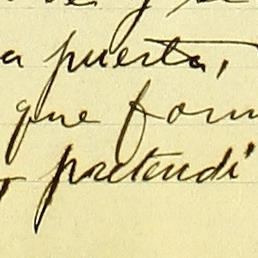 y se
a puerta,
que form
y pretendí